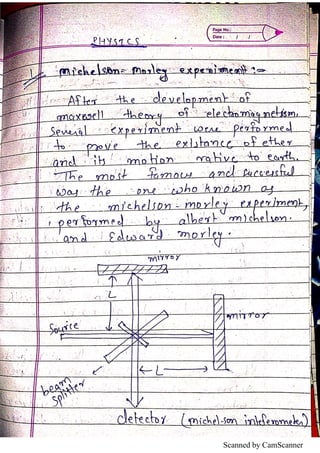 Page No.:
Date: / /
PHYSICS
1. michelson-morley experiment :-
After the development of
maxwell theory of electromagnetism.
Several experiment were performed
to prove the existance of ether
and its motion rative to earth.
The most famous and successful
was the one who known as
the michelson-morley experiment,
performed by albert michelson.
and Edward morley.
mirror
L
mirror
Source
L
beam
splitter
detector (michel-son inteferometer)
Scanned by CamScanner